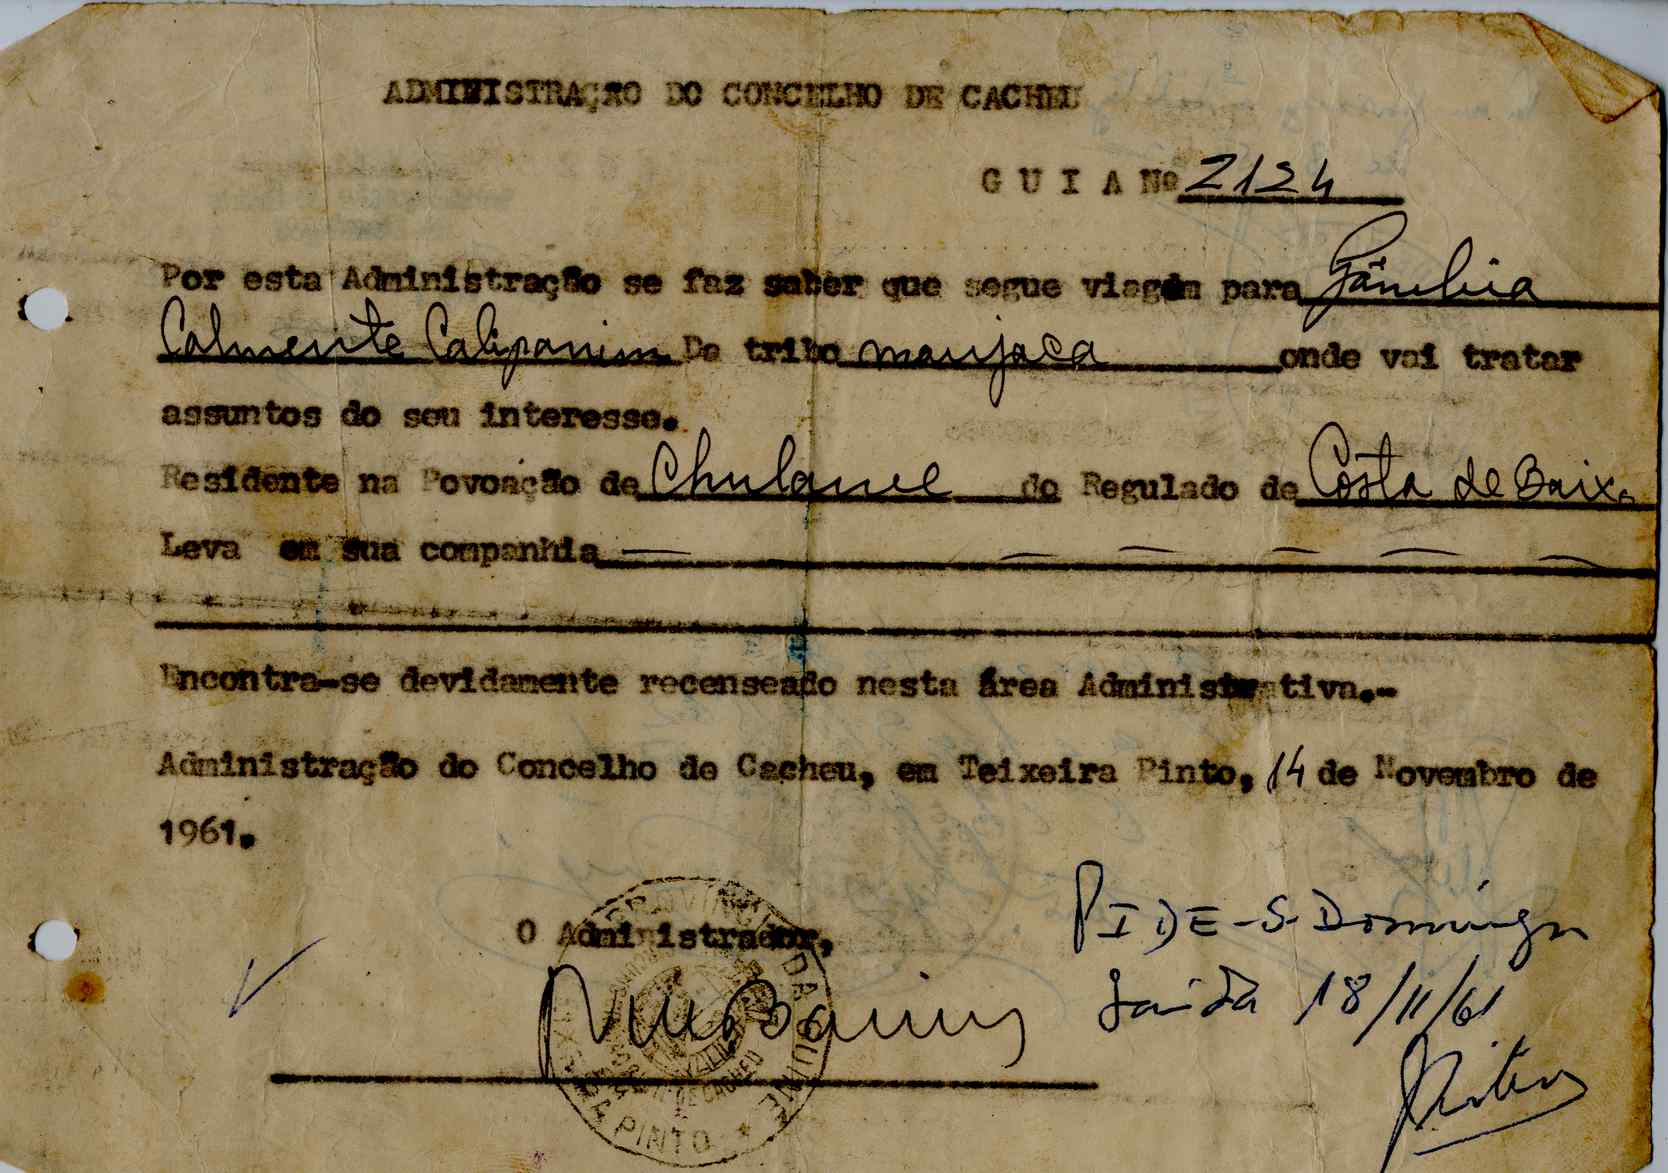 ADMINISTRAÇÃO DO CONCELHO DE CACHEU
G U I A Nº 2124
Por esta Administração se faz saber que segue viagem para Gâmbia
Calmente Calipanim Da tribo manjaca onde vai tratar
assuntos do seu interesse.
Residente na Povoação de Chulame do Regulado de Costa de Baixo
Leva em sua companhia — — — — — —
Encontra-se devidamente recenseado nesta área Administrativa.-
Administração do Concelho de Cacheu, em Teixeira Pinto, 14 de Novembro de
1961.
O Administrador,
PROVINCIA DA GUINÉ
DE CACHEU
PINTO
PIDE-S-Domingos
Saída 18/11/61